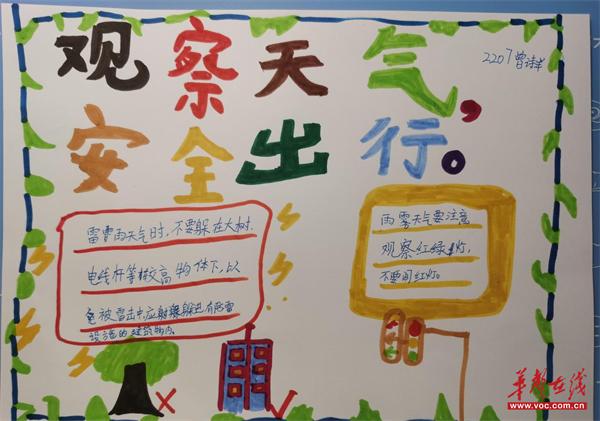 观察天气,
安全出行。
2207曾诗
雷雨天气时,不要躲在大树.
电线杆等较高物体下,以
免被雷击中应躲进有防雷
设施的建筑物内
雨雾天气要注意
观察红绿灯,
不要闯红灯。
华声在线
www.voc.com.cn